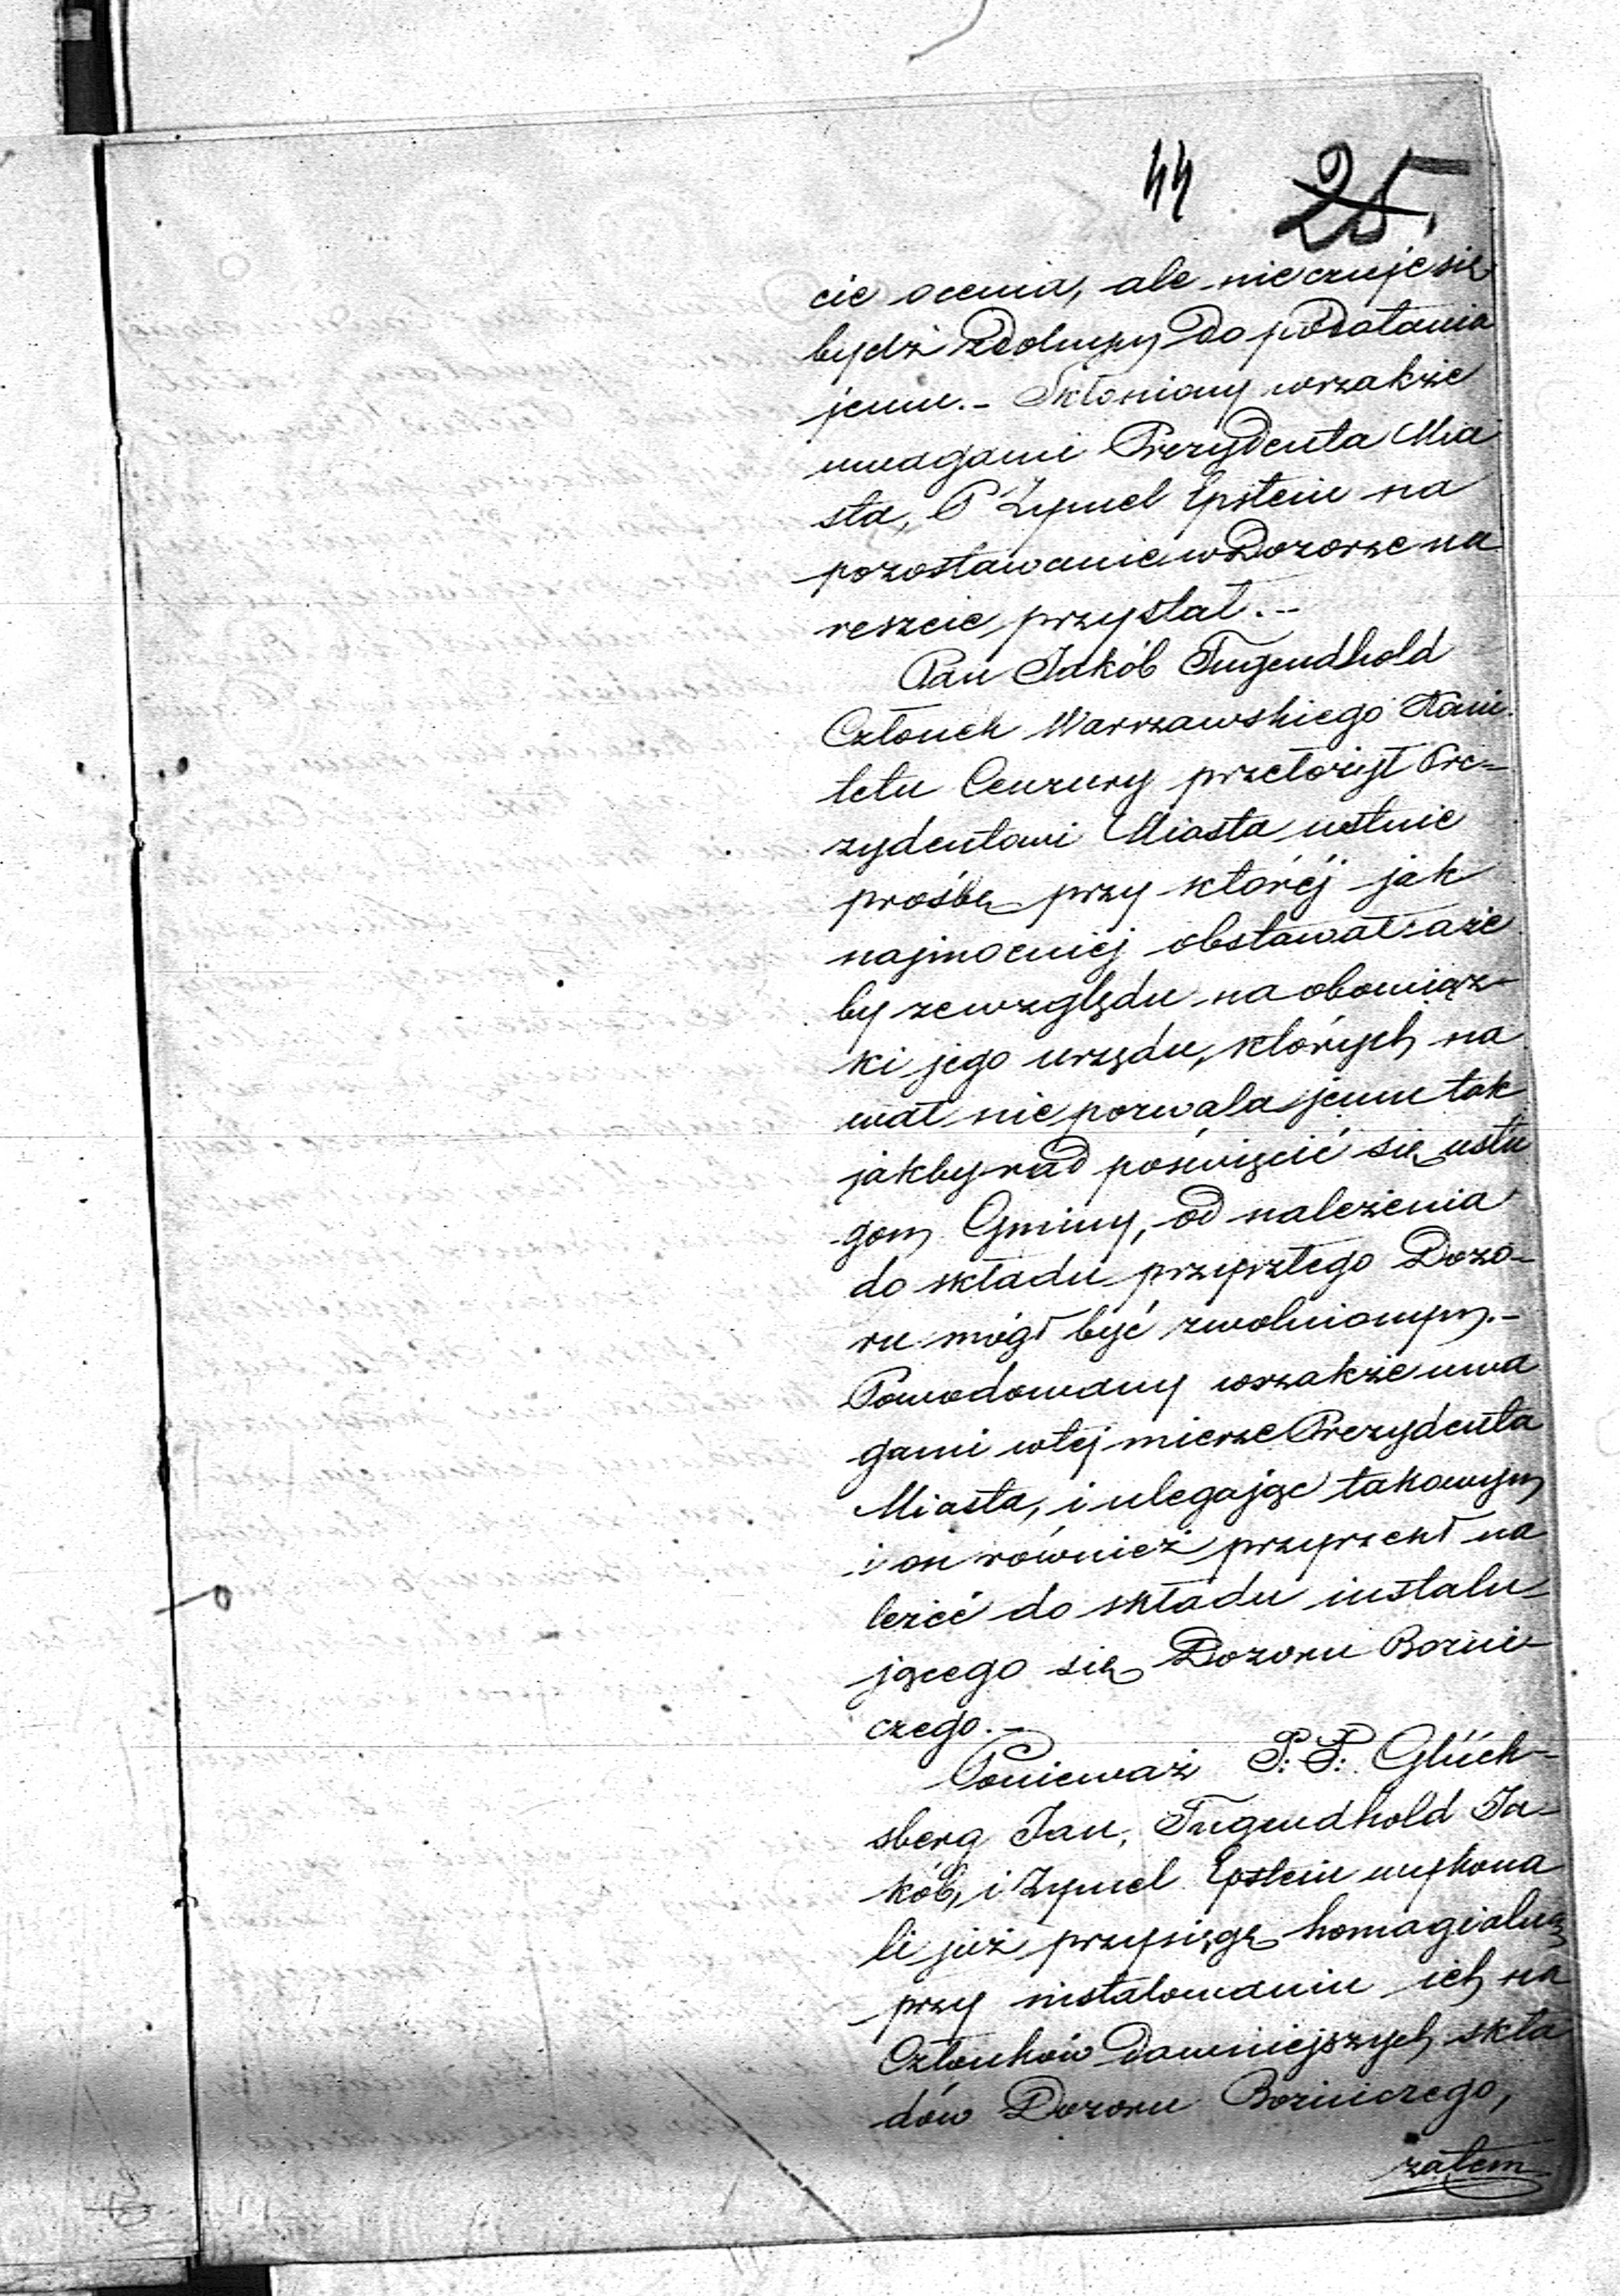 44 25.
cie ocenia, ale nie czuje się
bydź zdolnym do podołania
jemu.- Skłoniony wszakże
uwagami Prezydenta Mia
sta, P Zymel Epstein na
pozostawanie w Dozorze na
reszcie przystał.-
Pan Jakób Tugendhold
Członek Warszawskiego Komi
tetu Cenzury przełożył Pre=
zydentowi Miasta ustnie
prośbę przy któréj jak
najmocniej obstawał aże
by ze względu na obowiąz-
ki jego urzędu, których na
wał nie pozwala jemu tak
jakby rad poświęcić się usłu
gom Gminy, od należenia
do składu przyszłego Dozo-
ru mógł być zwolnionym.-
Powodowany wszakże uwa
gami w tej mierze Prezydenta
Miasta, i ulegając takowym
i on również przyrzekł na
leżeć do składu instalu-
jącego się Dozoru Bożni-
czego.-
Ponieważ P.P. Glück-
sberg Jan, Tugendhold Ja-
kób, i Zymel Epstein wykona
li już przysięgę homagialną
przy instalowaniu ich na
Członków dawniejszych skła
dów Dozoru Bożniczego,
zatem